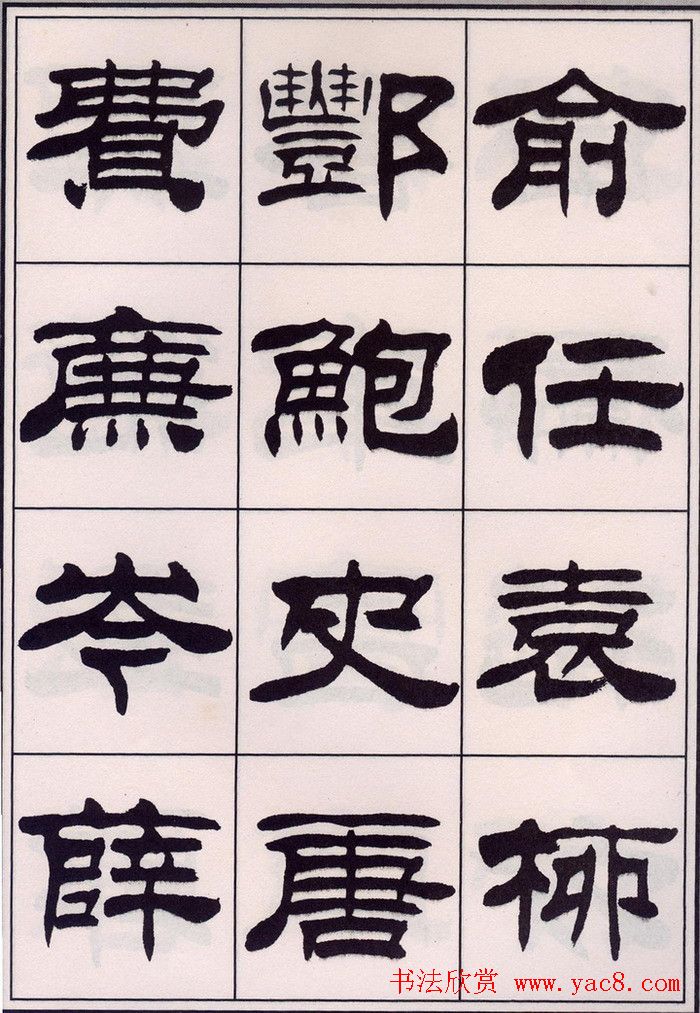 俞任袁柳
酆鮑史唐
費廉岑薛
书法欣赏 www.yac8.com